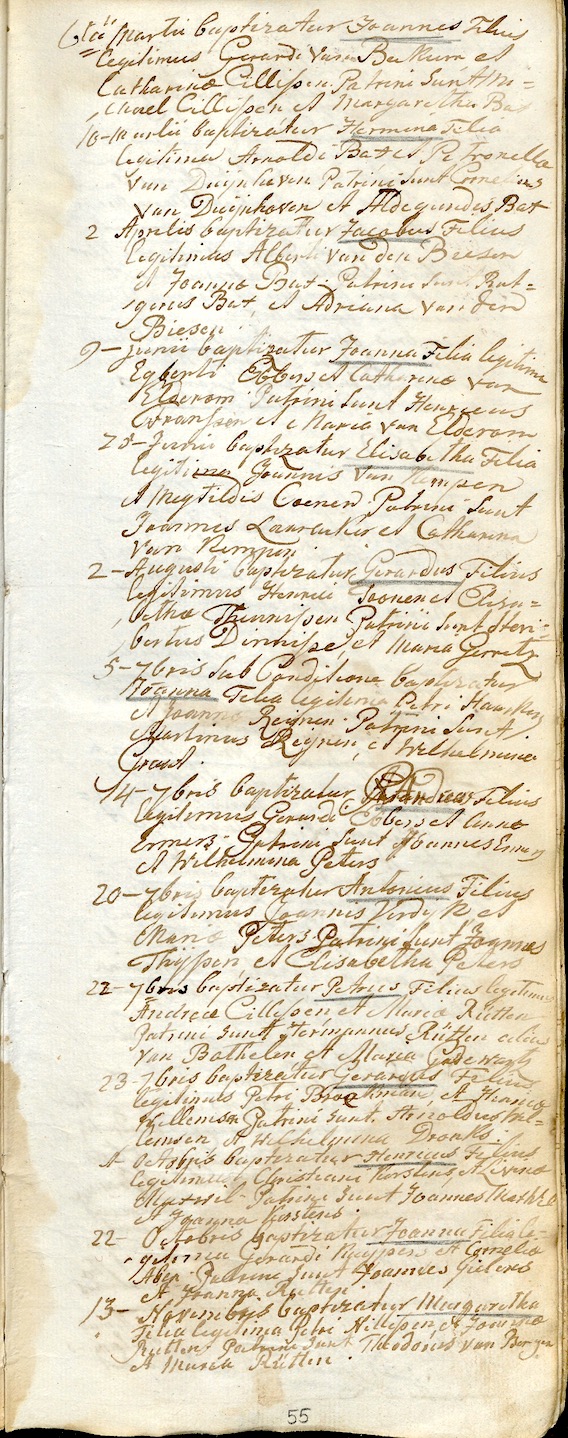 6ta Martii baptizatur Joannes Filius
legitimus Gerardi van Beekum et
Catharinæ Cillessen. Patrini Sunt Mi=
chael Cillessen et Margaretha Bat
10-Martii baptizatur Hermina Filia
legitima Arnoldi Bat et Petronella
van Duijnhoven Patrini Sunt Cornelius
van Duijnhoven et Aldegundes Bat
2 Aprilis baptizatur Jacobus Filius
legitimus Alberti van den Biesen
et Joannæ Bat. Patrini Sunt Rut=
gerus Bat et Adriana van den
Biesen
9-Junii baptizatur Joanna Filia legitima
Egberti Ebbers et Catharinæ van
Elderom Patrini Sunt Henricus
Franssen et Maria van Elderom
25-Junii baptizatur Elisabetha Filia
legitima Joannis van Kempen
et Megtildis Coenen Patrini Sunt
Joannes et Catharina
van Kempen
2-Augusti baptizatur Gerardus Filius
legitimus Henrici Toonen et Elisa=
bethæ Thunnissen Patrini Sunt Heri=
bertus et Maria Gerritz
5-7bris Sub Conditione baptizatur
Joanna Filia legitima Petri
et Joannæ Reijnen. Patrini Sunt
Martinus Reijnen, et Wilhelmina

14-7bris baptizatur Filius
legitimus Gerardi Ebbers et Annæ
Ermers. Patrini Sunt Joannes Ermers
et Wilhelmina Peters
20-7bris baptizatur Antonius Filius
legitimus Joannis Verdijk et
Mariæ Peters. Patrini Sunt Joannes
Thijssen et Elisabetha Peters
22-7bris baptizatur Petrus Filius legitimus
Andreæ Cillessen et Mariæ Rütten
Patrini Sunt Hermannus Rütten alias
van Bathelen et Maria
23-7bris baptizatur Gerardus Filius
legitimus Petri Broekman, et Henricæ
Willemsen Patrini Sunt. Arnoldus Wil=
lemsen et Wilhelmina Dronks.
Octobris baptizatur Henricus Filius
legitimus Christiani Kerstens et
Patrini Sunt Joannes
et Joanna Kerstens
22-Octobris baptizatur Joanna Filia le=
gitima Gerardi Kuijpers et Cornelia
Aben. Patrini Sunt Joannes Gielens
et Joanna Rütten
13-Novembris baptizatur Margaretha
Filia legitima Petri Nillessen et Joannæ
Rütten. Patrini Sunt Theodorus van Bergen
et Maria Rütten.
55